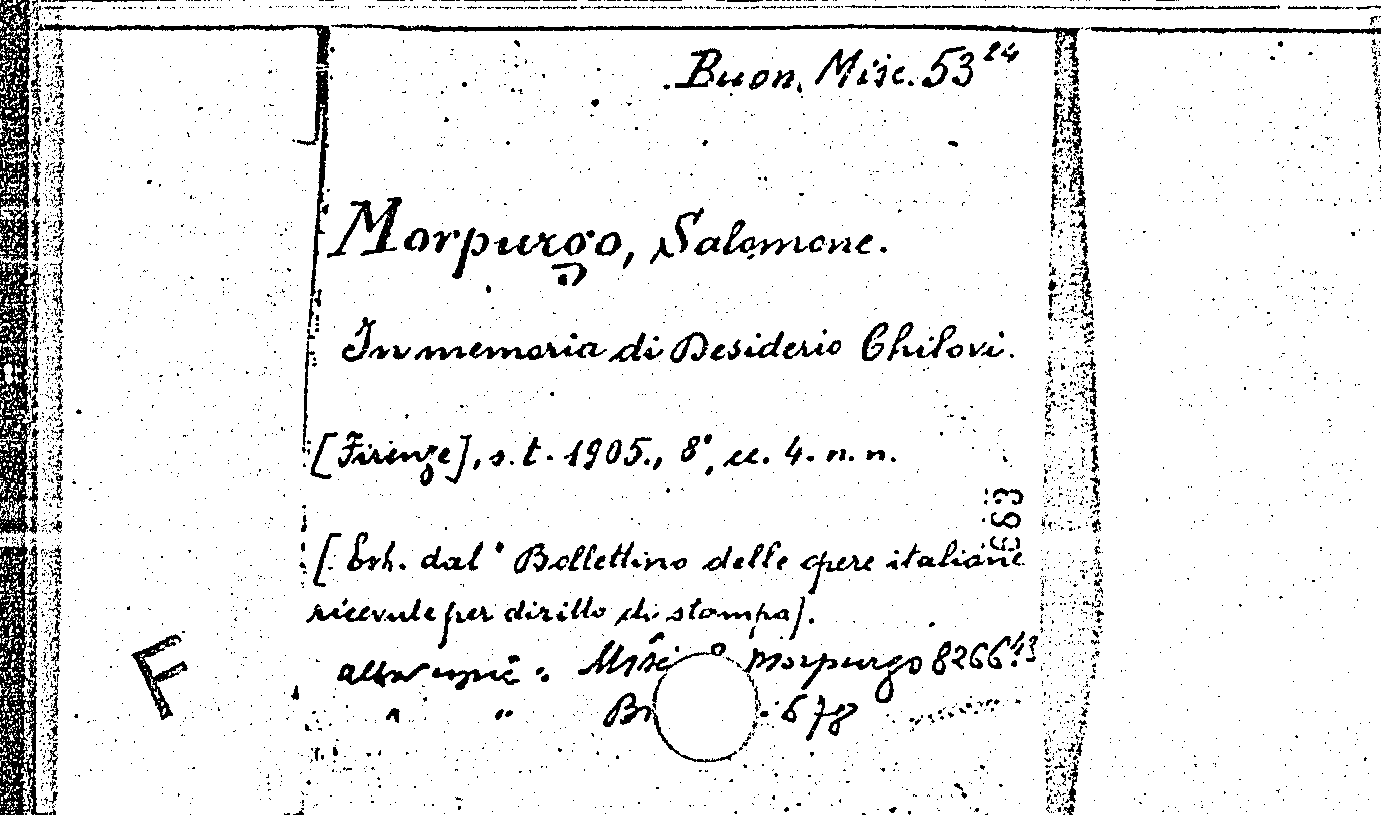 Buon. Misc. 53²⁴
Morpurgo, Salomone.
In memoria di Desiderio Chilovi.
[Firenze], s. t. 1905., 8°, cc. 4. n. n.
663
[Estr. dal " Bollettino delle opere italiane
ricevute per diritto di stampa].
altra copia : Misc Morpurgo 8266.⁴³
" " 678
F